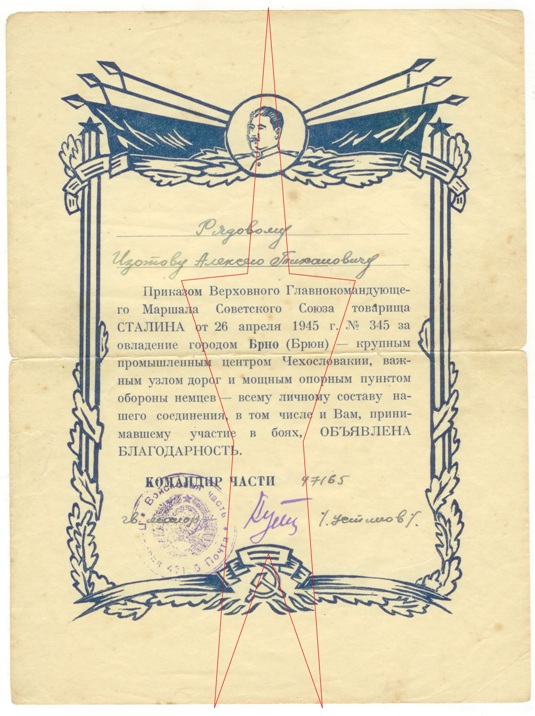 Рядовому
Изотову Алексею Тихановичу
Приказом Верховного Главнокомандующе-
го Маршала Советского Союза товарища
СТАЛИНА от 26 апреля 1945 г. № 345 за
овладение городом Брно (Брюн) — крупным
промышленным центром Чехословакии, важ-
ным узлом дорог и мощным опорным пунктом
обороны немцев — всему личному составу на-
шего соединения, в том числе и Вам, прини-
мавшему участие в боях, ОБЪЯВЛЕНА
БЛАГОДАРНОСТЬ.
КОМАНДИР ЧАСТИ 47165
гв. майор /Устинов/
Войсковая часть
Почта